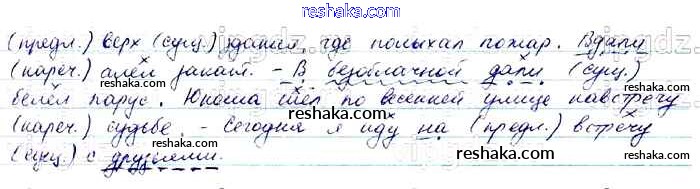 reshaka.com
(предл.) верх (сущ.) здания, где полыхал пожар. Вдали
reshaka.com
(нареч.) алел закат. - В безоблачной дали (сущ.)
белел парус. Юноша шёл по весенней улице навстречу
reshaka.com
(нареч.) судьбе. - Сегодня я иду на (предл.) встречу
(сущ.) с друзьями.
reshaka.com